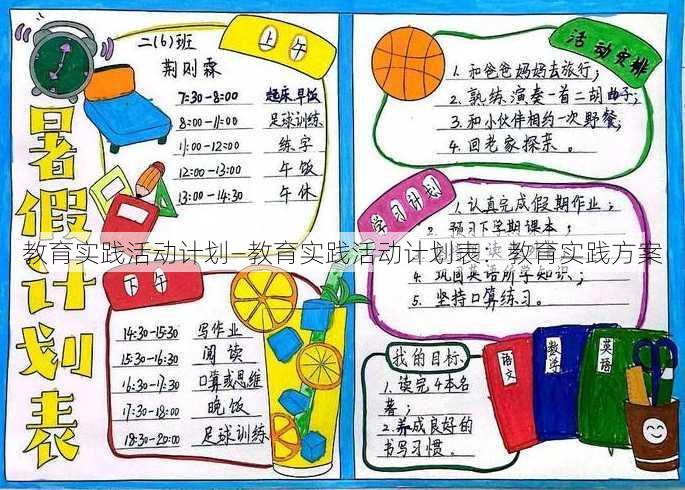 暑假计划表
二(6)班
荆则霖
上午
7:30-8:00 起床、早饭
8:00-11:00 足球训练
11:00-12:00 练字
12:00-13:00 午饭
13:00-14:30 午休
下午
14:30-15:30 写作业
15:30-16:30 阅读
16:30-17:30 口算或思维
17:30-18:00 晚饭
18:30-20:00 足球训练
活动安排
1. 和爸爸妈妈去旅行；
2. 熟练演奏一首二胡曲子；
3. 和小伙伴相约一次野餐；
4. 回老家探亲。
学习计划
1. 认真完成假期作业；
2. 预习下学期课本；
教育实践活动计划—教育实践活动计划表：教育实践方案
4. 巩固英语所学知识；
5. 坚持口算练习。
我的目标：
1. 读完4本名
著；
2. 养成良好的
书写习惯。
语文
数学
英语